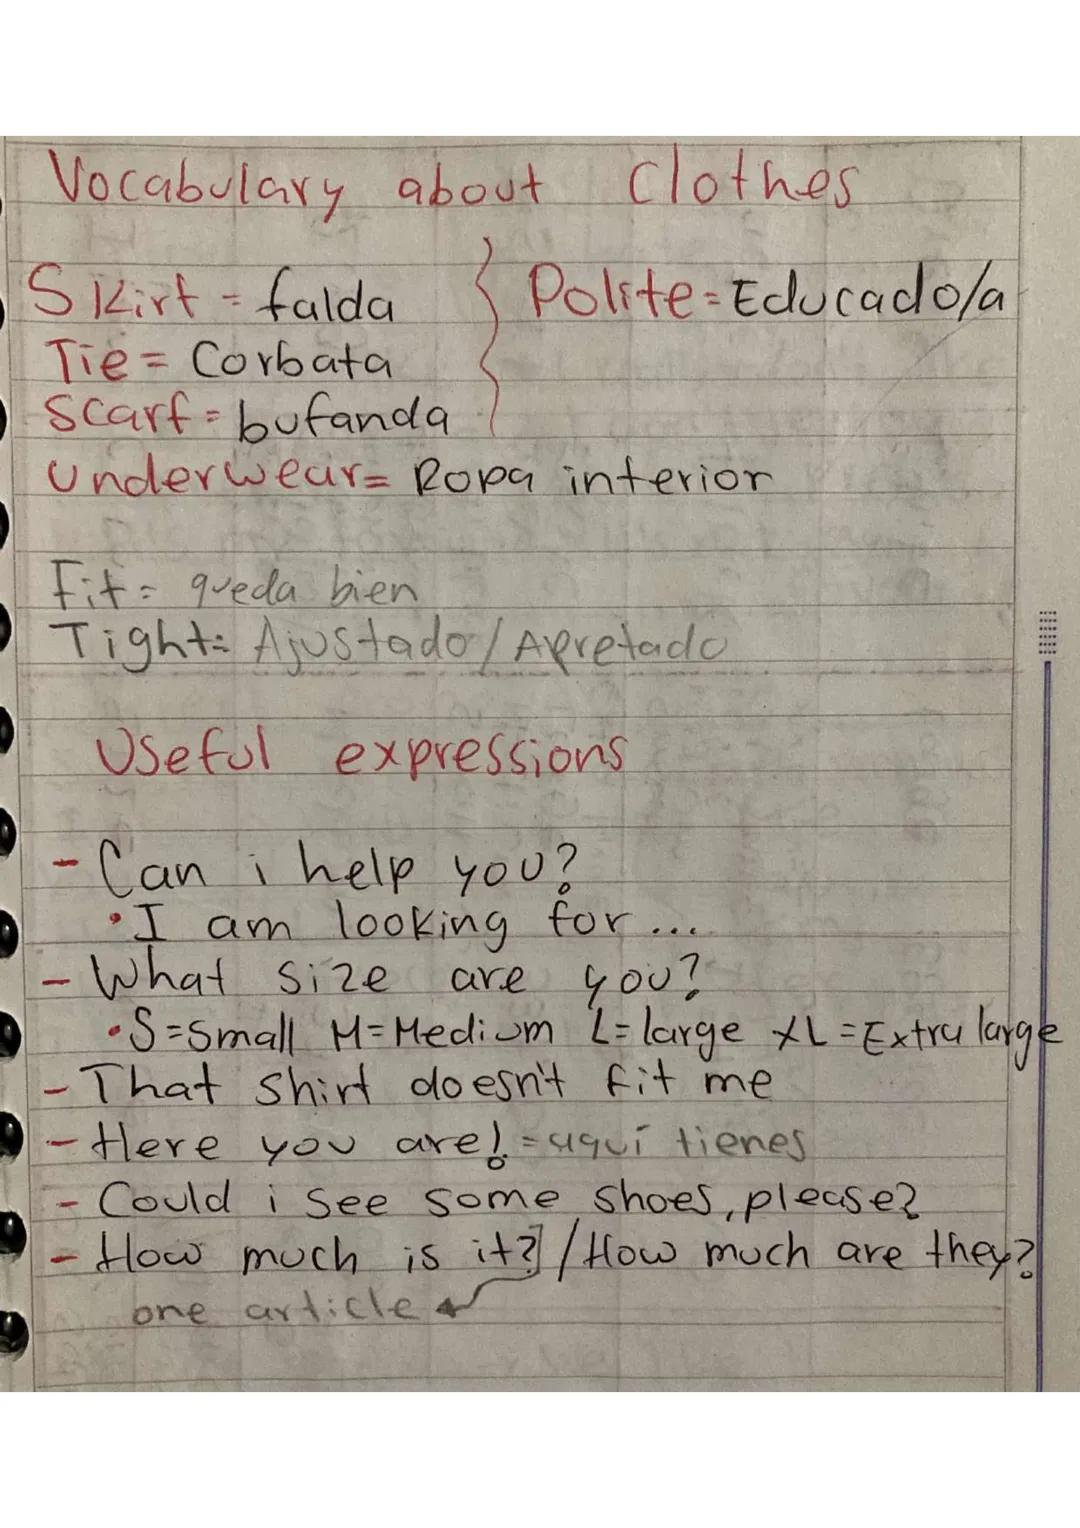 Vocabulary about Clothes
Skirt = falda
Polite = Educado/a
Tie = Corbata
Scarf = bufanda
Underwear = Ropa interior
Fit = queda bien
Tight = Ajustado / Apretado
Useful expressions
- Can i help you?
• I am looking for ...
- What size are you?
• S = Small M = Medium L = large XL = Extra large
- That shirt doesn't fit me
- Here you are! = aquí tienes
- Could i see some shoes, please?
- How much is it? / How much are they?
one article